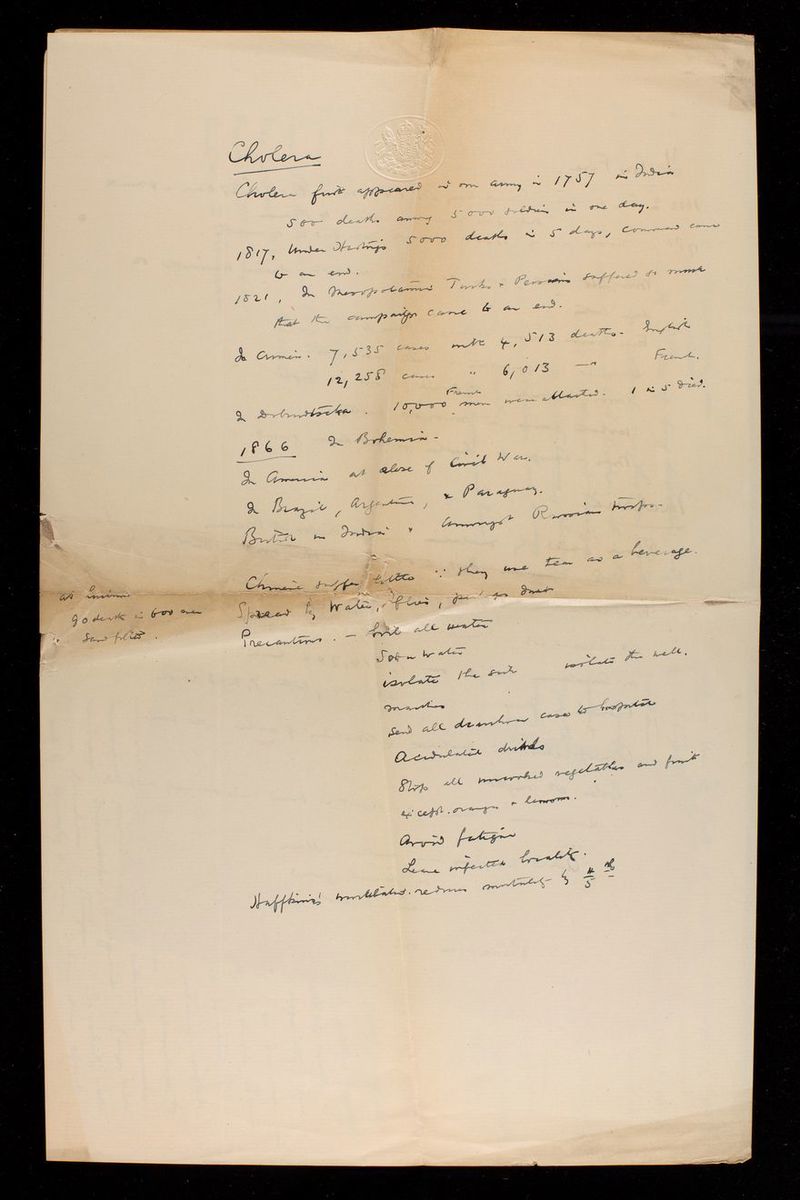 Cholera
Cholera first appeared in our army in 1757 in India
500 deaths among 5000 soldiers in one day.
1817, Under Hastings 5000 deaths in 5 days, command came
to an end.
1821, In Mesopotamia Turks & Persians suffered so much
that the campaign came to an end.
In Crimea. 7,535 cases with 4,513 deaths - English
12,258 cases " 6,013 — " French.
In Dobrudscha. 10,000 French men were attacked. 1 in 5 died.
1866 In Bohemia -
In America at close of Civil War.
In Brazil, Argentine, & Paraguay.
British in India & amongst Russian troops.
Chinese suffer little ∵ they use tea as a beverage.
at
90 deaths in 600 men
Sand filter.
Spread by Water, flies, dust
Precautions. — boil all water
Soda Water
isolate the sick isolate the well.
marches
send all diarrhoea cases to hospital
Acidulated drinks
Stop all uncooked vegetables and fruit
except oranges & lemons.
Avoid fatigue
Leave infected locality.
Haffkine's reduces mortality by 4/5 th